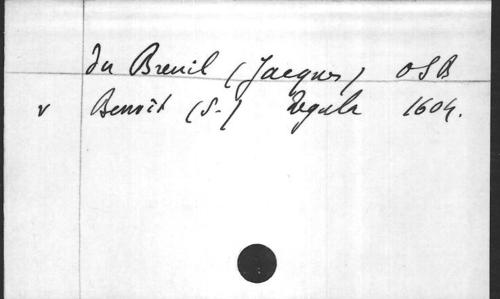 du Breuil (Jacques) OSB
v Benoît (S.) Regula 1604.